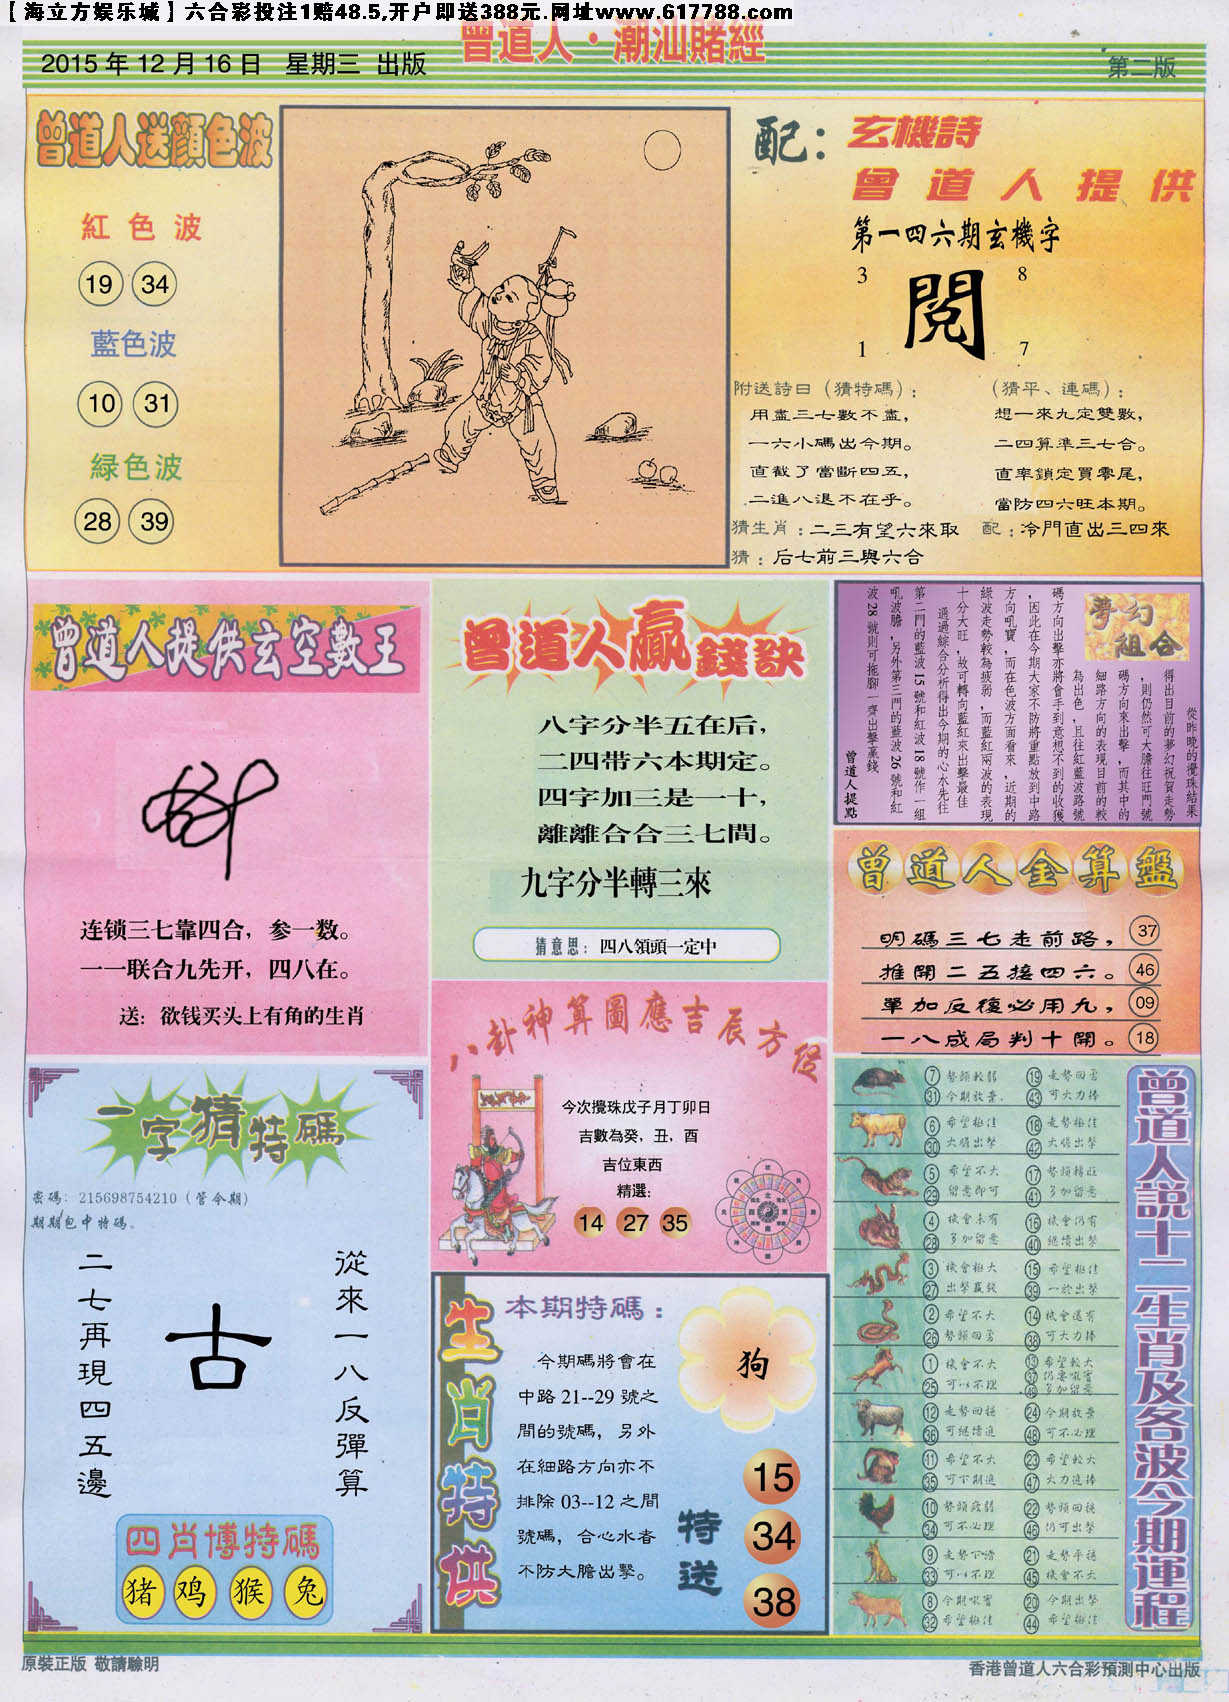 【海立方娱乐城】六合彩投注1赔48.5,开户即送388元.网址www.617788.com
曾道人·潮汕賭經
2015年12月16日 星期三 出版
第二版
曾道人送顔色波
紅色波
19 34
藍色波
10 31
緑色波
28 39
配：玄機詩
曾道人提供
第一四六期玄機字
3 8
閱
1 7
附送詩曰（猜特碼）：
用盡三七數不盡，
一六小碼出今期。
直截了當斷四五，
二進八退不在乎。
（猜平、連碼）：
想一來九定雙數，
二四算準三七合。
直率鎖定買零尾，
當防四六旺本期。
猜生肖：二三有望六來取
配：冷門直出三四來
猜：后七前三與六合
曾道人提供玄空數王
连锁三七靠四合，参一数。
一一联合九先开，四八在。
送：欲钱买头上有角的生肖
曾道人贏錢訣
八字分半五在后，
二四带六本期定。
四字加三是一十，
離離合合三七間。
九字分半轉三來
猜意思：四八領頭一定中
夢幻組合
從昨晚的攪珠結果
得出目前的夢幻祝賀走勢
，則仍然可大膽往旺門號
碼方向來出擊，而其中的
細路方向的表現目前的較
為出色，且往紅藍波路號
碼方向出擊亦將會手到意想不到的收獲
，因此在今期大家不防將重點放到中路
方向吼寶，而在色波方面看來，近期的
綠波走勢較為疲弱，而藍紅兩波的表現
十分大旺，故可轉向藍紅來出擊最佳
通過綜合分析得出今期的心水先往
第二門的藍波15號和紅波18號作一組
吼波膽，另外第三門的藍波26號和紅
波28號則可拖腳一齊出擊贏錢
曾道人提點
曾道人金算盤
明碼三七走前路，37
推開二五接四六。46
單加反復必用九，09
一八成局判十開。18
八卦神算圖應吉辰方位
今次攪珠戊子月丁卯日
吉數為癸，丑，酉
吉位東西
精選：
14 27 35
一字猜特碼
密碼：215698754210（管今期）
期期包中特碼。
從來一八反彈算
古
二七再現四五邊
四肖博特碼
猪 鸡 猴 兔
生肖特供
本期特碼：
今期碼將會在
中路21--29號之
間的號碼，另外
在細路方向亦不
排除03--12之間
號碼，合心水者
不防大膽出擊。
狗
特送
15
34
38
曾道人説十二生肖及各波今期運程
7 勢頭較弱 19 走勢回雲
31 今期放棄. 43 可大力捧
6 希望極佳 18 走勢極佳
30 大膽出擊 42 大膽出擊
5 希望不大 17 勢頭轉旺
29 留意即可 41 多加留意
4 機會未有 16 機會仍有
28 多加留意 40 繼續出擊
3 機會極大 15 希望極佳
27 出擊贏錢 39 一於出擊
2 希望不大 14 機會還有
26 勢頭回勇 38 可大力捧
1 機會不大 13 希望較大
25 可以不理 37 仍要吼實
49 多加留意
12 走勢回穩 24 今期放棄
36 可繼續追 48 可不必理
11 希望不大 23 希望較大
35 可下期追 47 大力追捧
10 勢頭疲弱 22 勢頭回穩
34 可不必理 46 仍可出擊
9 走勢下滑 21 走勢平穩
33 可以不理 45 機會不大
8 今期吼實 20 今期出擊
32 希望極佳 44 希望極佳
原裝正版 敬請驗明
香港曾道人六合彩預測中心出版